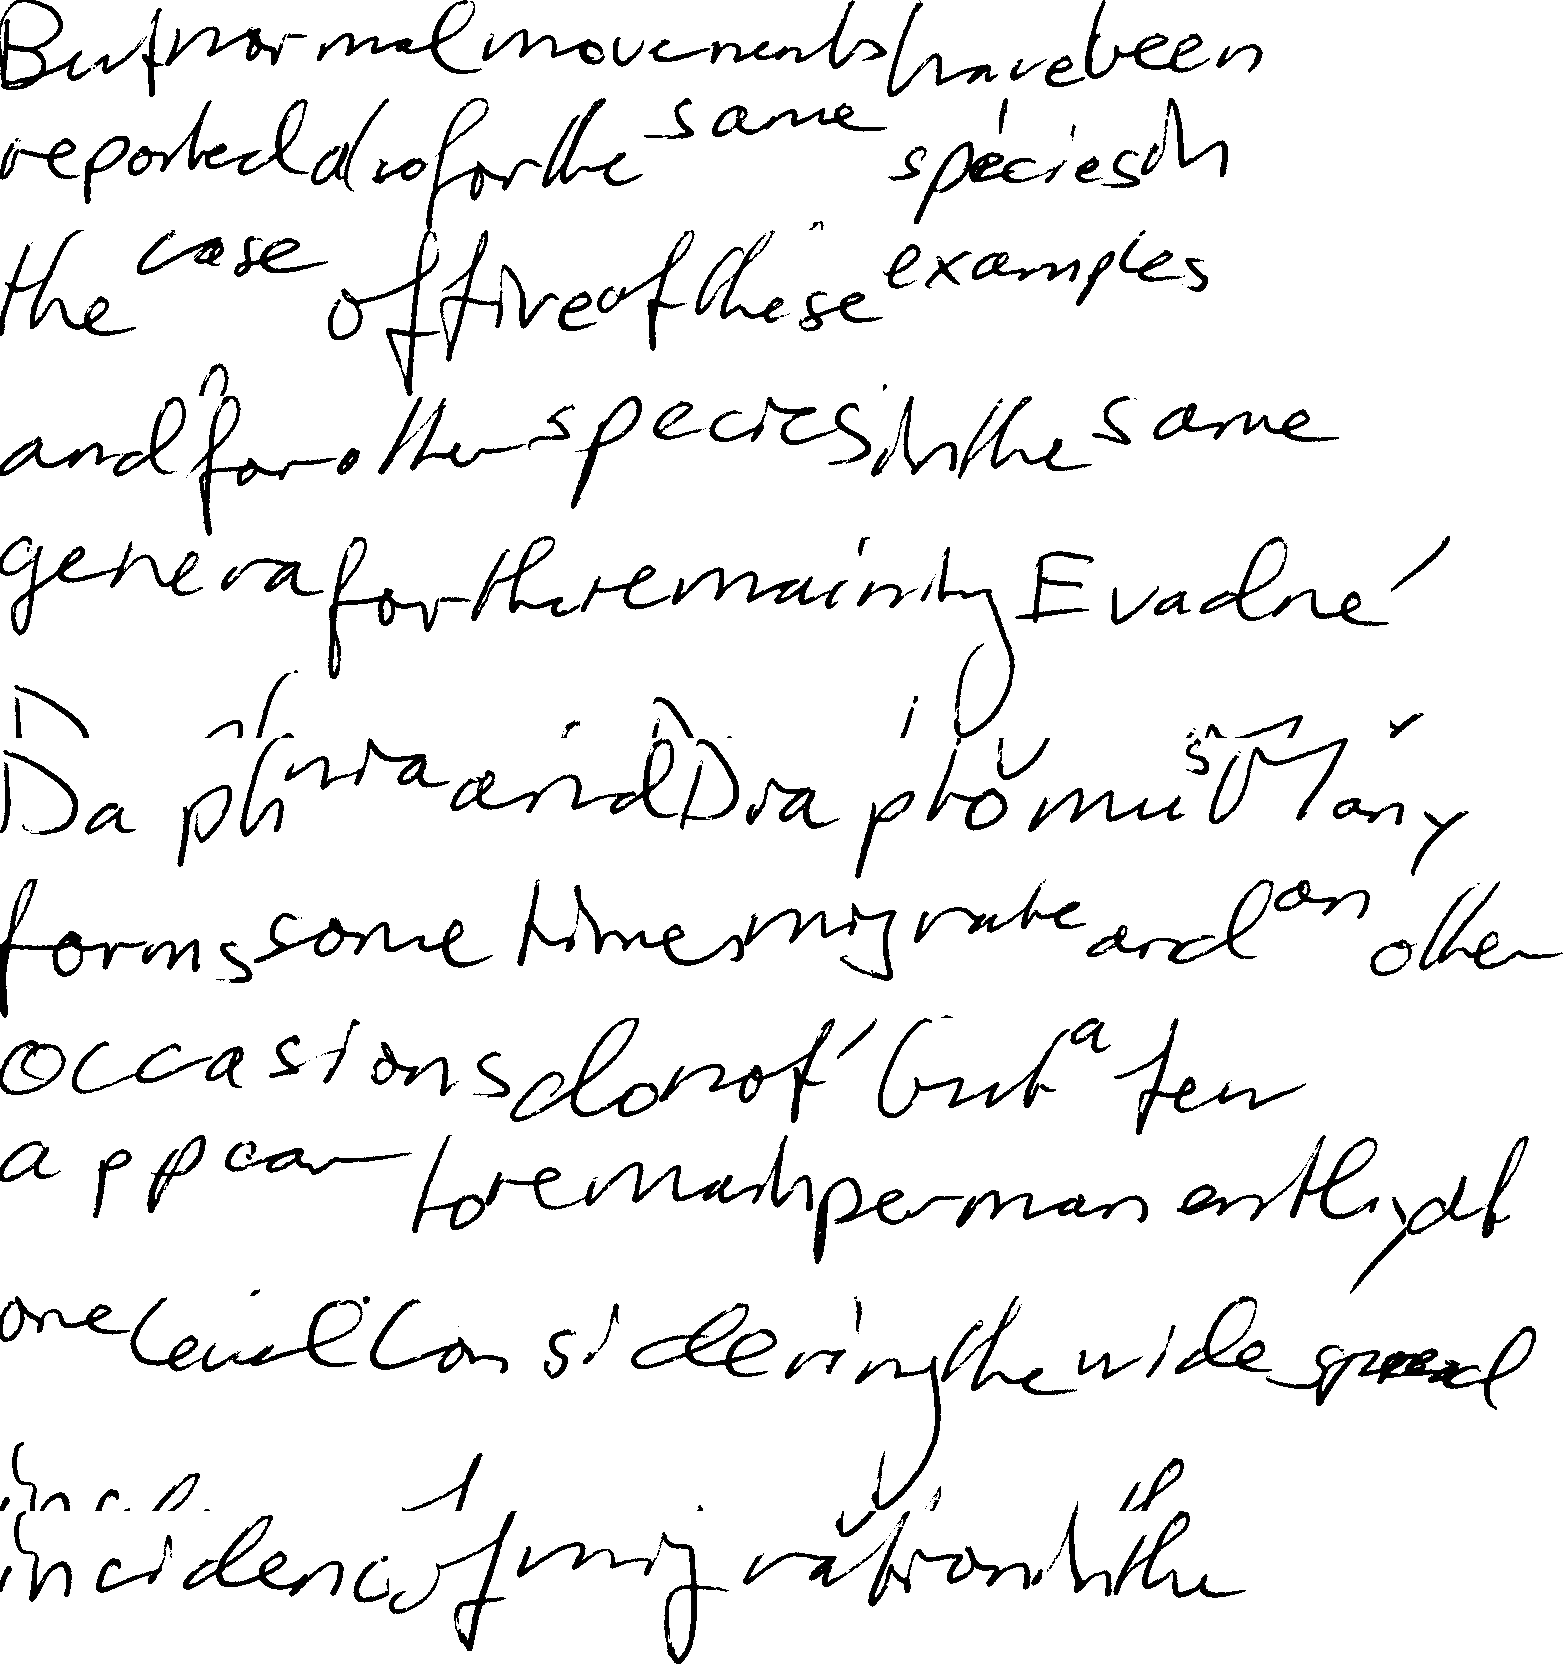 But normal movements have been
reported also for the same species in
the case of five of these examples
and for other species in the same
genera for the remaining Evadne
Daphnia and Diaptomus Many
forms sometimes migrate and on other
occasions do not but a few
appear to remain permanently at
one level Considering the widespread
incidence of migration in the